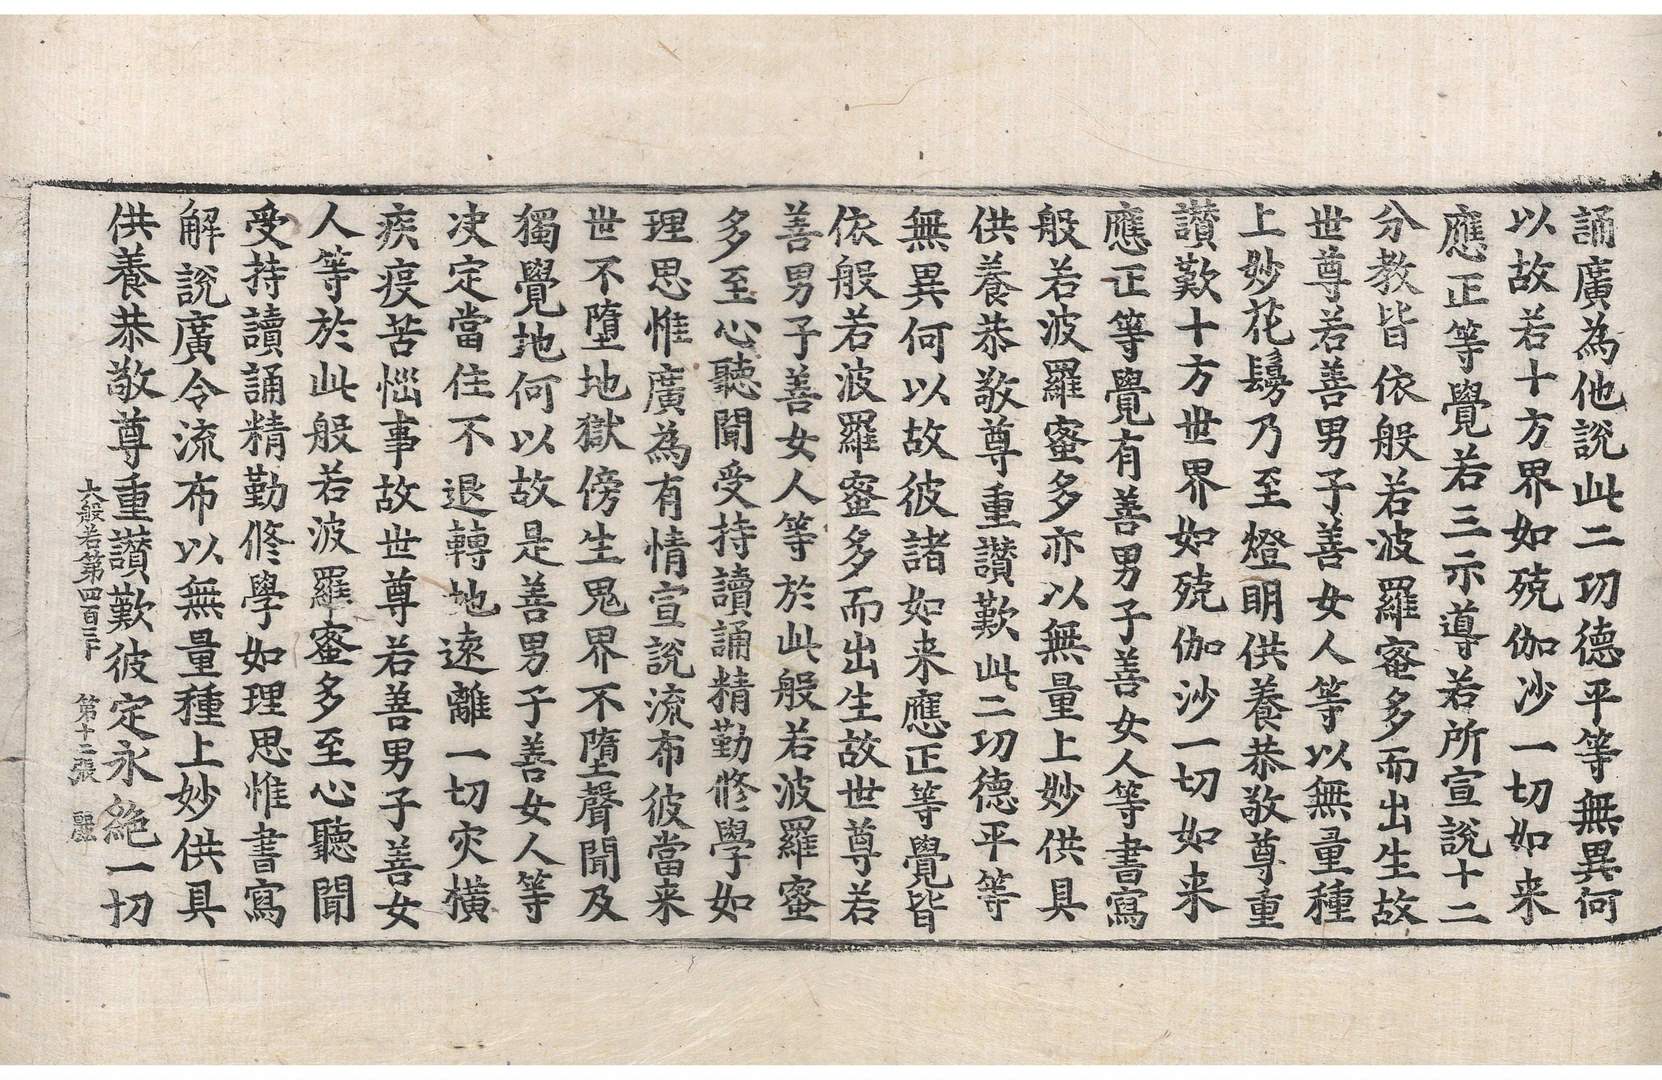 誦廣為他說此二功德平等無異何
以故若十方界如殑伽沙一切如来
應正等覺若三示導若所宣說十二
分教皆依般若波羅蜜多而出生故
世尊若善男子善女人等以無量種
上妙花鬘乃至燈明供養恭敬尊重
讃歎十方世界如殑伽沙一切如来
應正等覺有善男子善女人等書寫
般若波羅蜜多亦以無量上妙供具
供養恭敬尊重讃歎此二功德平等
無異何以故彼諸如来應正等覺皆
依般若波羅蜜多而出生故世尊若
善男子善女人等於此般若波羅蜜
多至心聽聞受持讀誦精勤修學如
理思惟廣為有情宣說流布彼當来
世不墮地獄傍生鬼界不墮聲聞及
獨覺地何以故是善男子善女人等
决定當住不退轉地遠離一切灾橫
疾疫苦惱事故世尊若善男子善女
人等於此般若波羅蜜多至心聽聞
受持讀誦精勤修學如理思惟書寫
解說廣令流布以無量種上妙供具
供養恭敬尊重讃歎彼定永絕一切
大般若第四百三十 第十二張 麗